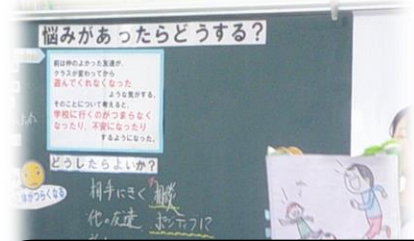 悩みがあったらどうする？
前は仲のよかった友達が、
クラスが変わってから
遊んでくれなくなった
ような気がする。
そのことについて考えると、
学校に行くのがつまらなく
なったり、不安になったり
するようになった。
どうしたらよいか？
相手にきく 相談
他の友達 ポジティブに
がつらくなる